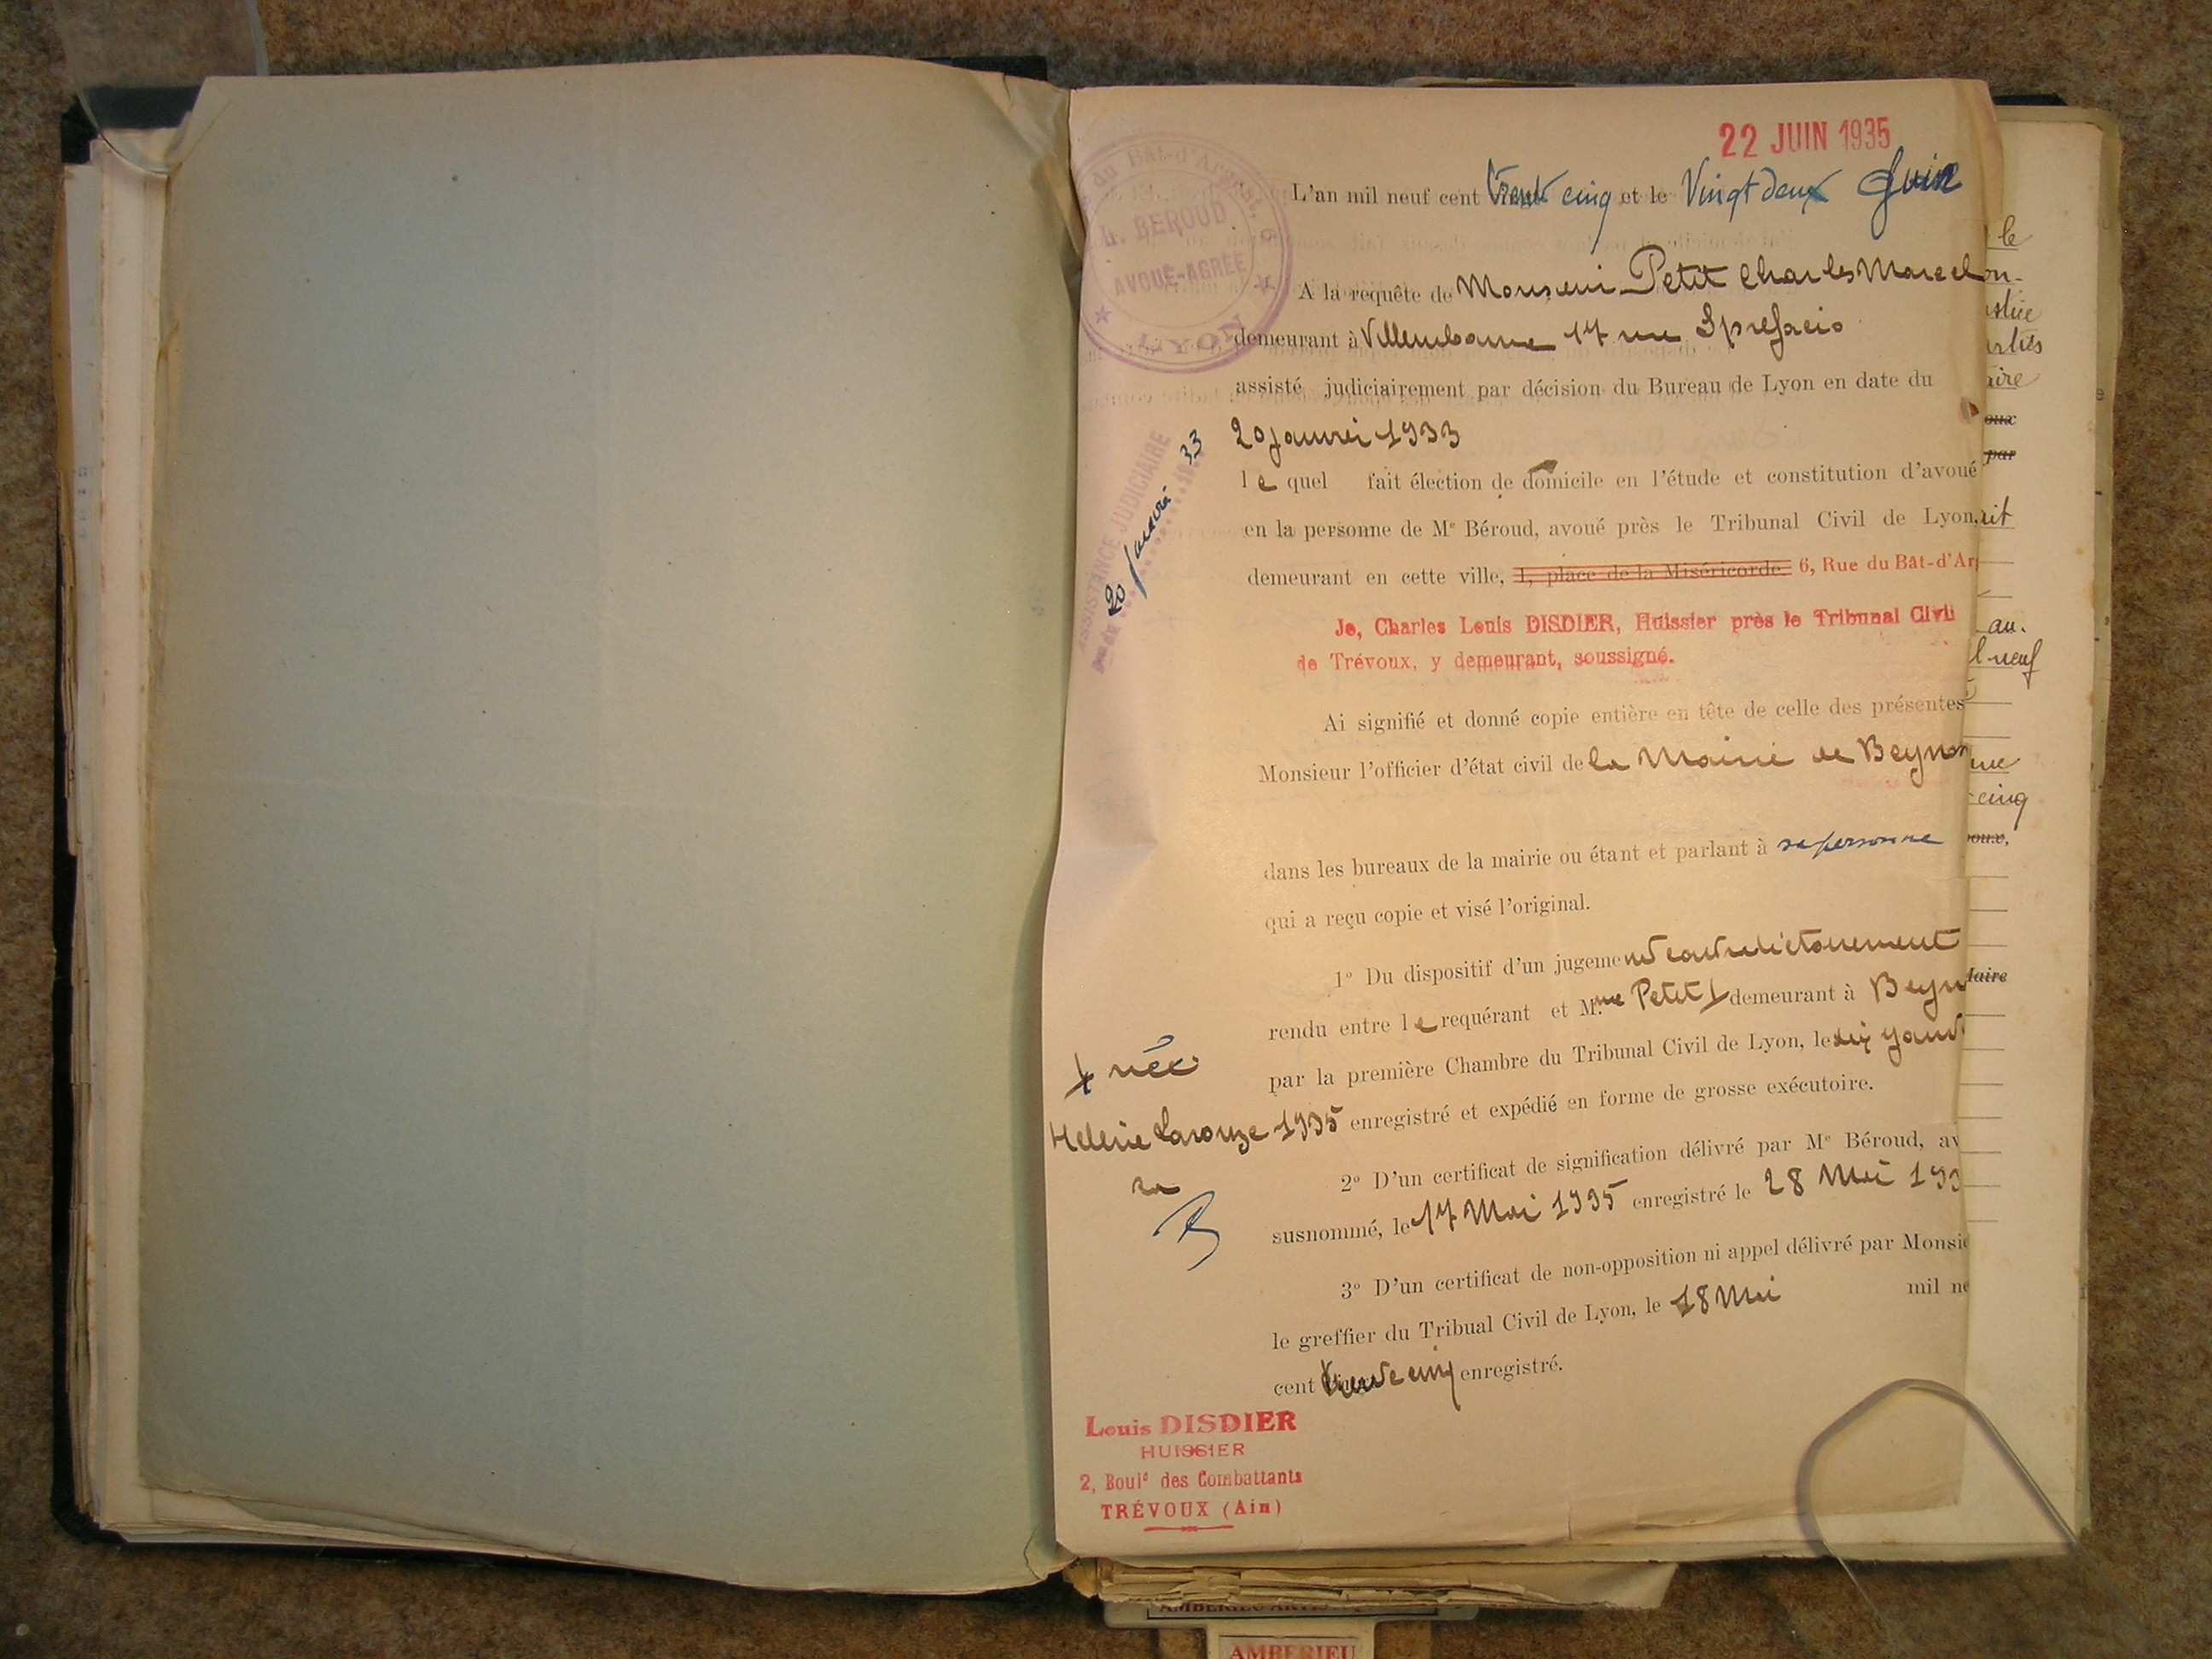 22 JUIN 1935
L'an mil neuf cent trente cinq et le Vingt deux Juin
A la requête de Monsieur Petit Charles Marcel
demeurant à Villeurbanne 17 rue
assisté judiciairement par décision du Bureau de Lyon en date du
20 janvier 1933
le quel fait élection de domicile en l'étude et constitution d'avoué
en la personne de Me Béroud, avoué près le Tribunal Civil de Lyon,
demeurant en cette ville, 1, place de la Miséricorde 6, Rue du Bât-d'Ar
Je, Charles Louis DISDIER, Huissier près le Tribunal Civil
de Trévoux, y demeurant, soussigné.
Ai signifié et donné copie entière en tête de celle des présentes
Monsieur l'officier d'état civil de la Mairie de Beyno
dans les bureaux de la mairie ou étant et parlant à sa personne
qui a reçu copie et visé l'original.
1° Du dispositif d'un jugement contradictoirement
rendu entre le requérant et Mme Petit demeurant à Beyn
par la première Chambre du Tribunal Civil de Lyon, le dix janv
1935 enregistré et expédié en forme de grosse exécutoire.
2° D'un certificat de signification délivré par Me Béroud, av
susnommé, le 17 Mai 1935 enregistré le 28 Mai 193
3° D'un certificat de non-opposition ni appel délivré par Monsie
le greffier du Tribual Civil de Lyon, le 18 Mai mil ne
cent trente cinq enregistré.
née
Louis DISDIER
HUISSIER
2, Bould des Combattants
TRÉVOUX (Ain)
du Bât-d'Argent, 6
L. BEROUD
AVOUÉ-AGRÉÉ
LYON
ASSISTANCE JUDICIAIRE
20 janvier 33
le
aire
par
au.
l neuf
cinq
AMBERIEU